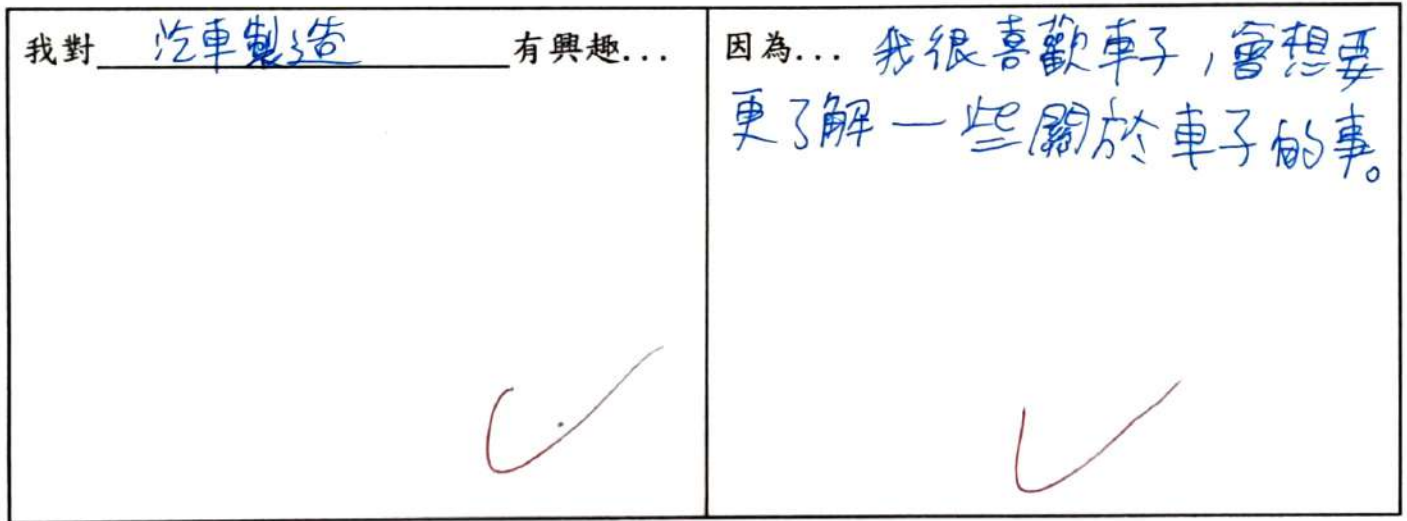 我對 汽車製造 有興趣...
因為... 我很喜歡車子,會想要
更了解一些關於車子的事。